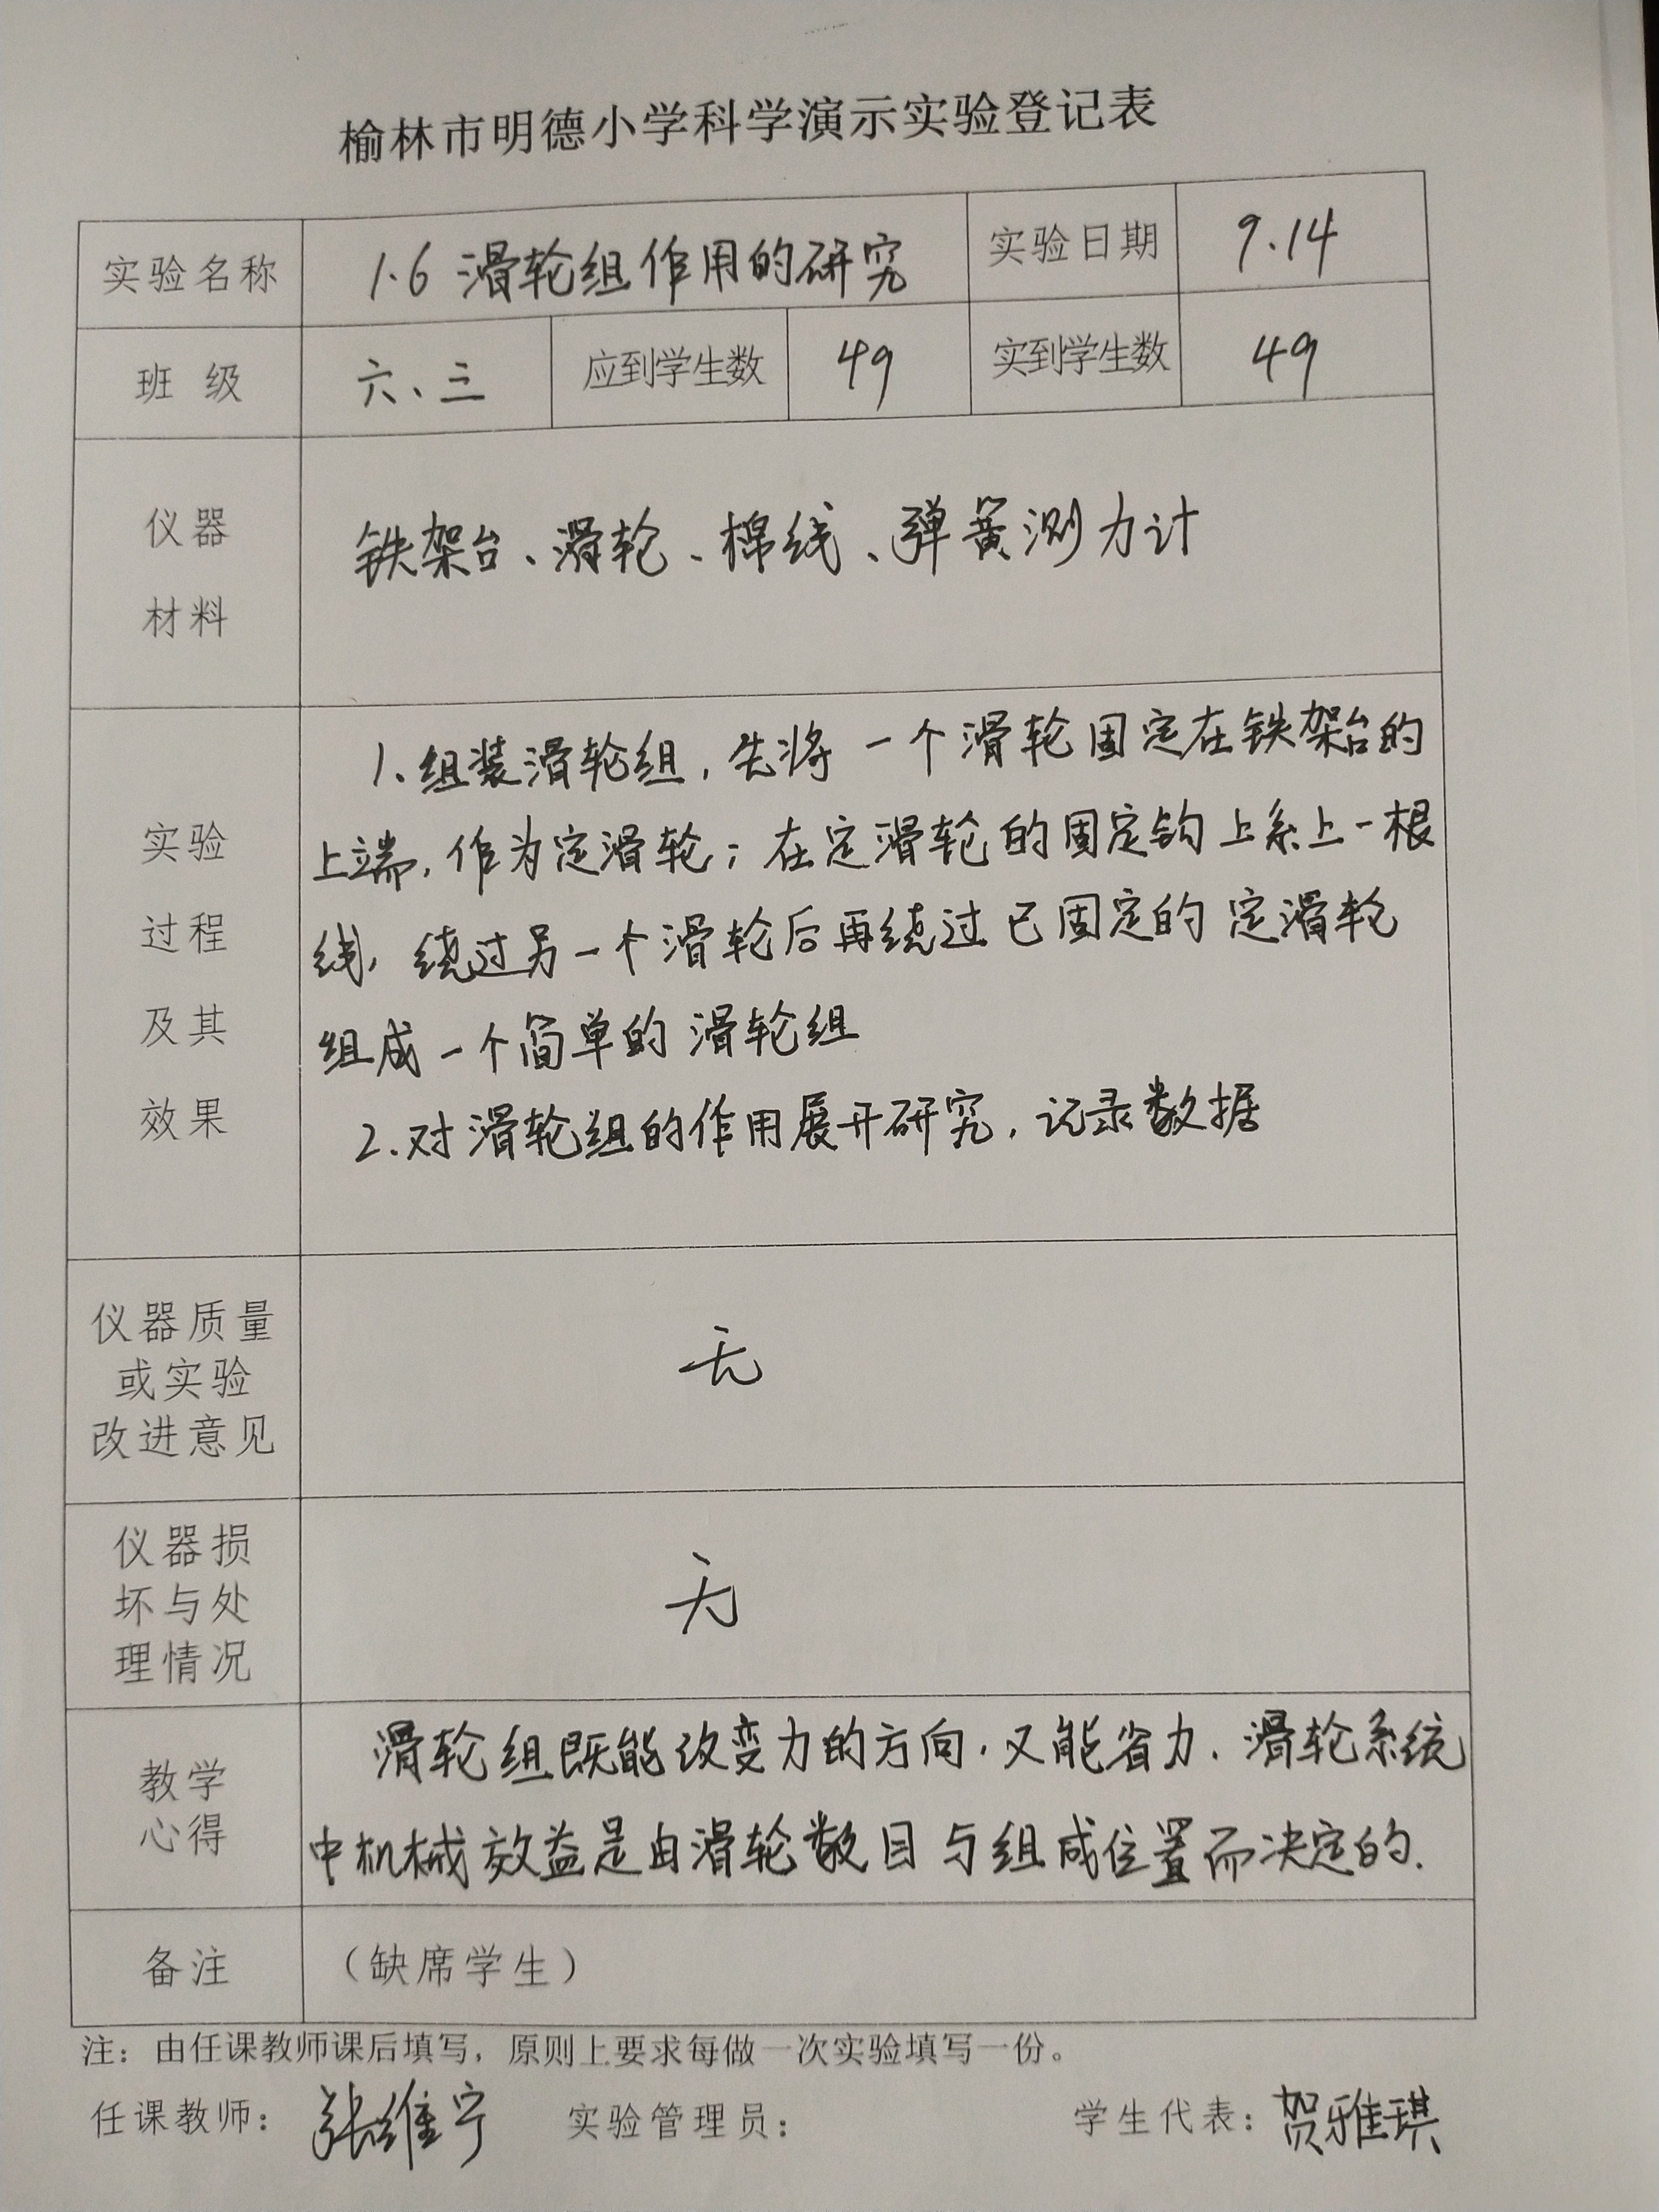 榆林市明德小学科学演示实验登记表
实验名称 1.6 滑轮组作用的研究 实验日期 9.14
班 级 六、三 应到学生数 49 实到学生数 49
仪器
材料
铁架台、滑轮、棉线、弹簧测力计
实验
过程
及其
效果
1、组装滑轮组，先将一个滑轮固定在铁架台的
上端，作为定滑轮；在定滑轮的固定钩上系上一根
线，绕过另一个滑轮后再绕过已固定的定滑轮
组成一个简单的滑轮组
2.对滑轮组的作用展开研究，记录数据
仪器质量
或实验
改进意见
无
仪器损
坏与处
理情况
无
教学
心得
滑轮组既能改变力的方向，又能省力．滑轮系统
中机械效益是由滑轮数目与组成位置而决定的．
备注 （缺席学生）
注：由任课教师课后填写，原则上要求每做一次实验填写一份。
任课教师：张维宁 实验管理员： 学生代表：贺雅琪